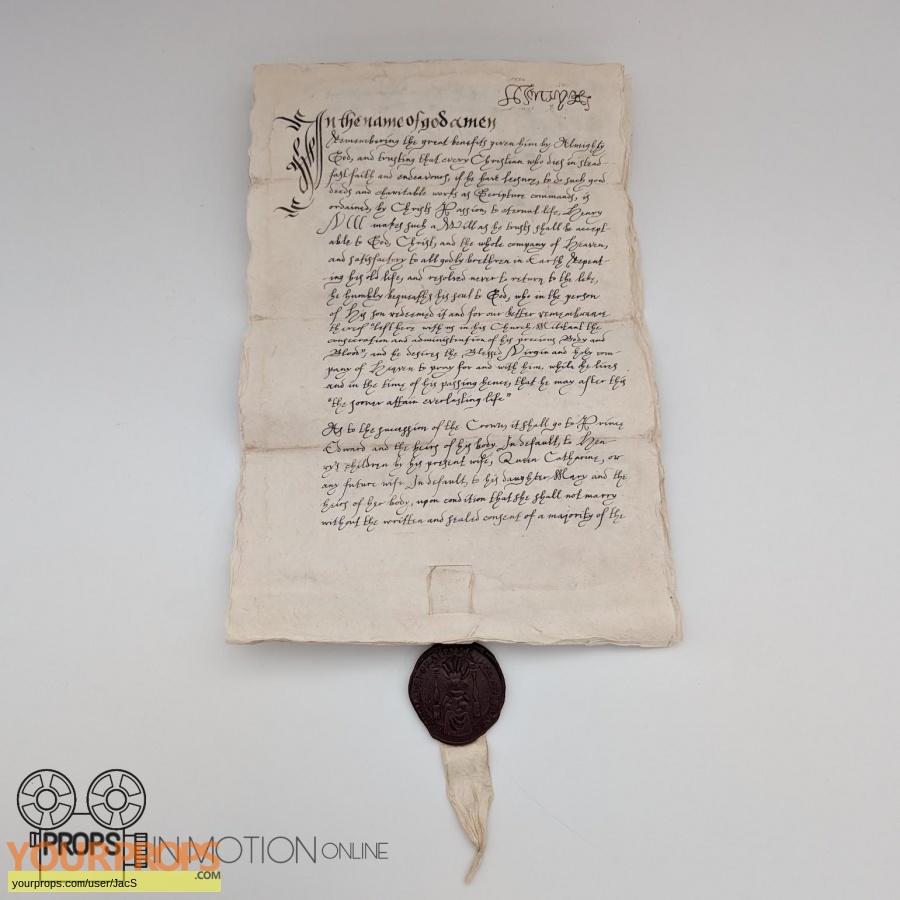 In the name of god amen
Remembering the great benefits given him by Almighty
God, and trusting that every Christian who dies in stead-
fast faith and endeavours, if he have leisure, to do such good
deeds and charitable works as Scripture commands, is
ordained, by Christs Passion, to eternal life, Henry
VIII makes such a Will as he trusts shall be accept-
able to God, Christ, and the whole company of Heaven,
and satisfactory to all godly brethren in Earth Repent-
ing his old life, and resolved never to return to the like,
he humbly bequeaths his soul to God, who in the person
of His son redeemed it and for our better remembrance
thereof "left here with us in his Church Militant the
consecration and administration of his precious Body and
Blood", and he desires the Blessed Virgin and holy com-
pany of Heaven to pray for and with him, while he lives
and in the time of his passing hence, that he may after this
"the sooner attain everlasting life"
As to the succession of the Crown, it shall go to Prince
Edward and the heirs of his body. In default, to Hen-
ry's children by his present wife, Queen Catharine, or
any future wife. In default, to his daughter Mary and the
heirs of her body, upon condition that she shall not marry
without the written and sealed consent of a majority of the
PROPS IN MOTION ONLINE
YOURPROPS
.COM
yourprops.com/user/JacS